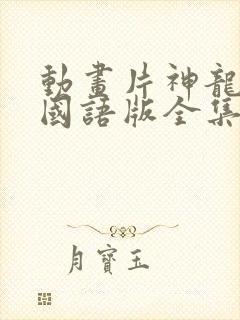 動畫片神龍
國語版全集
月寶玉